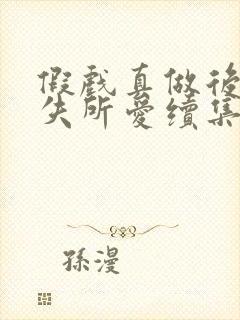 假戲真做後
失所愛續集
孫漫